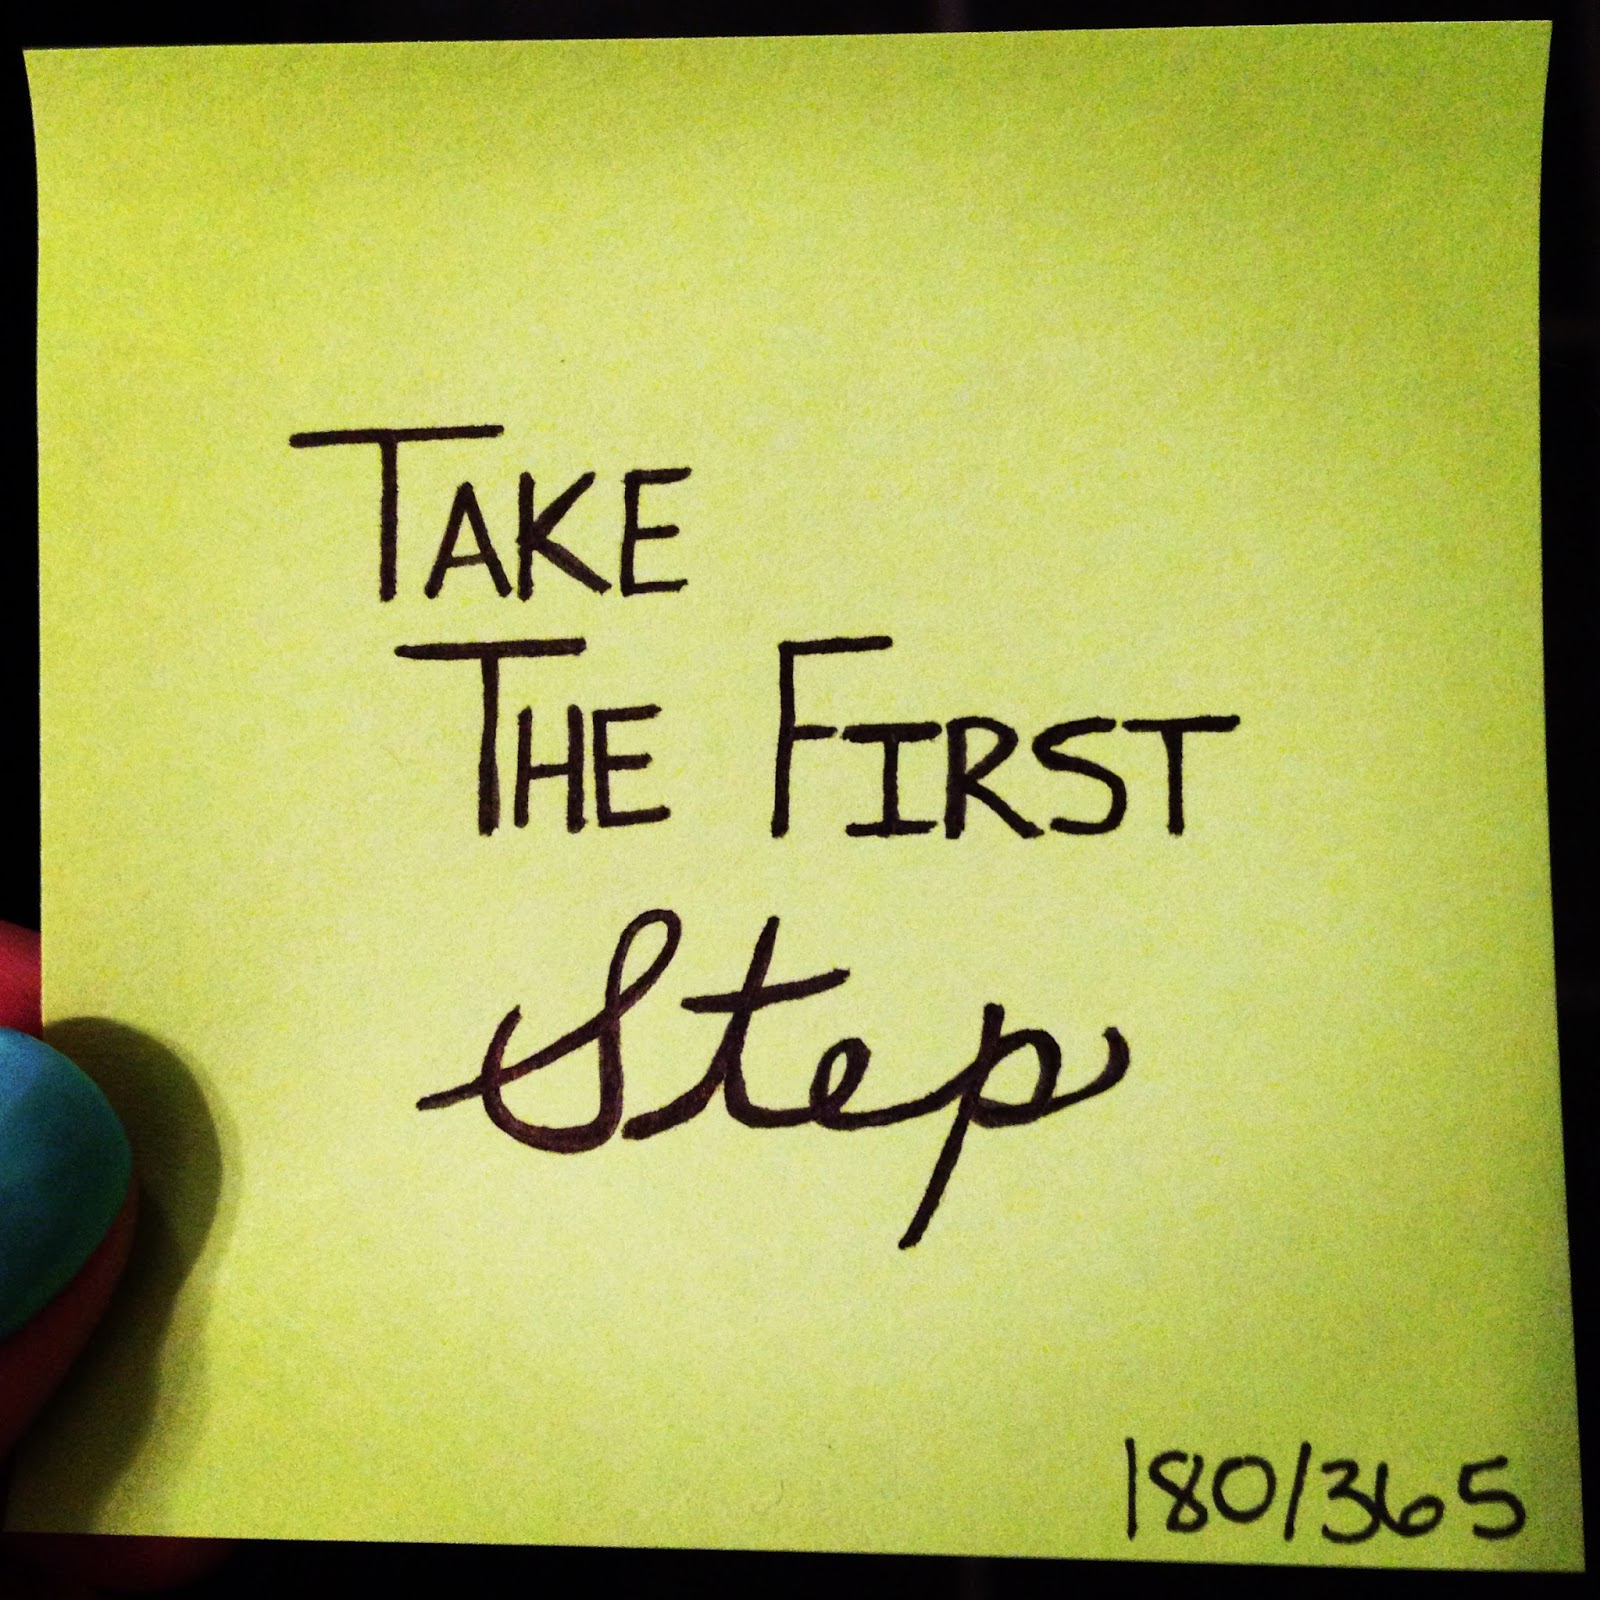 TAKE
THE FIRST
Step
180/365